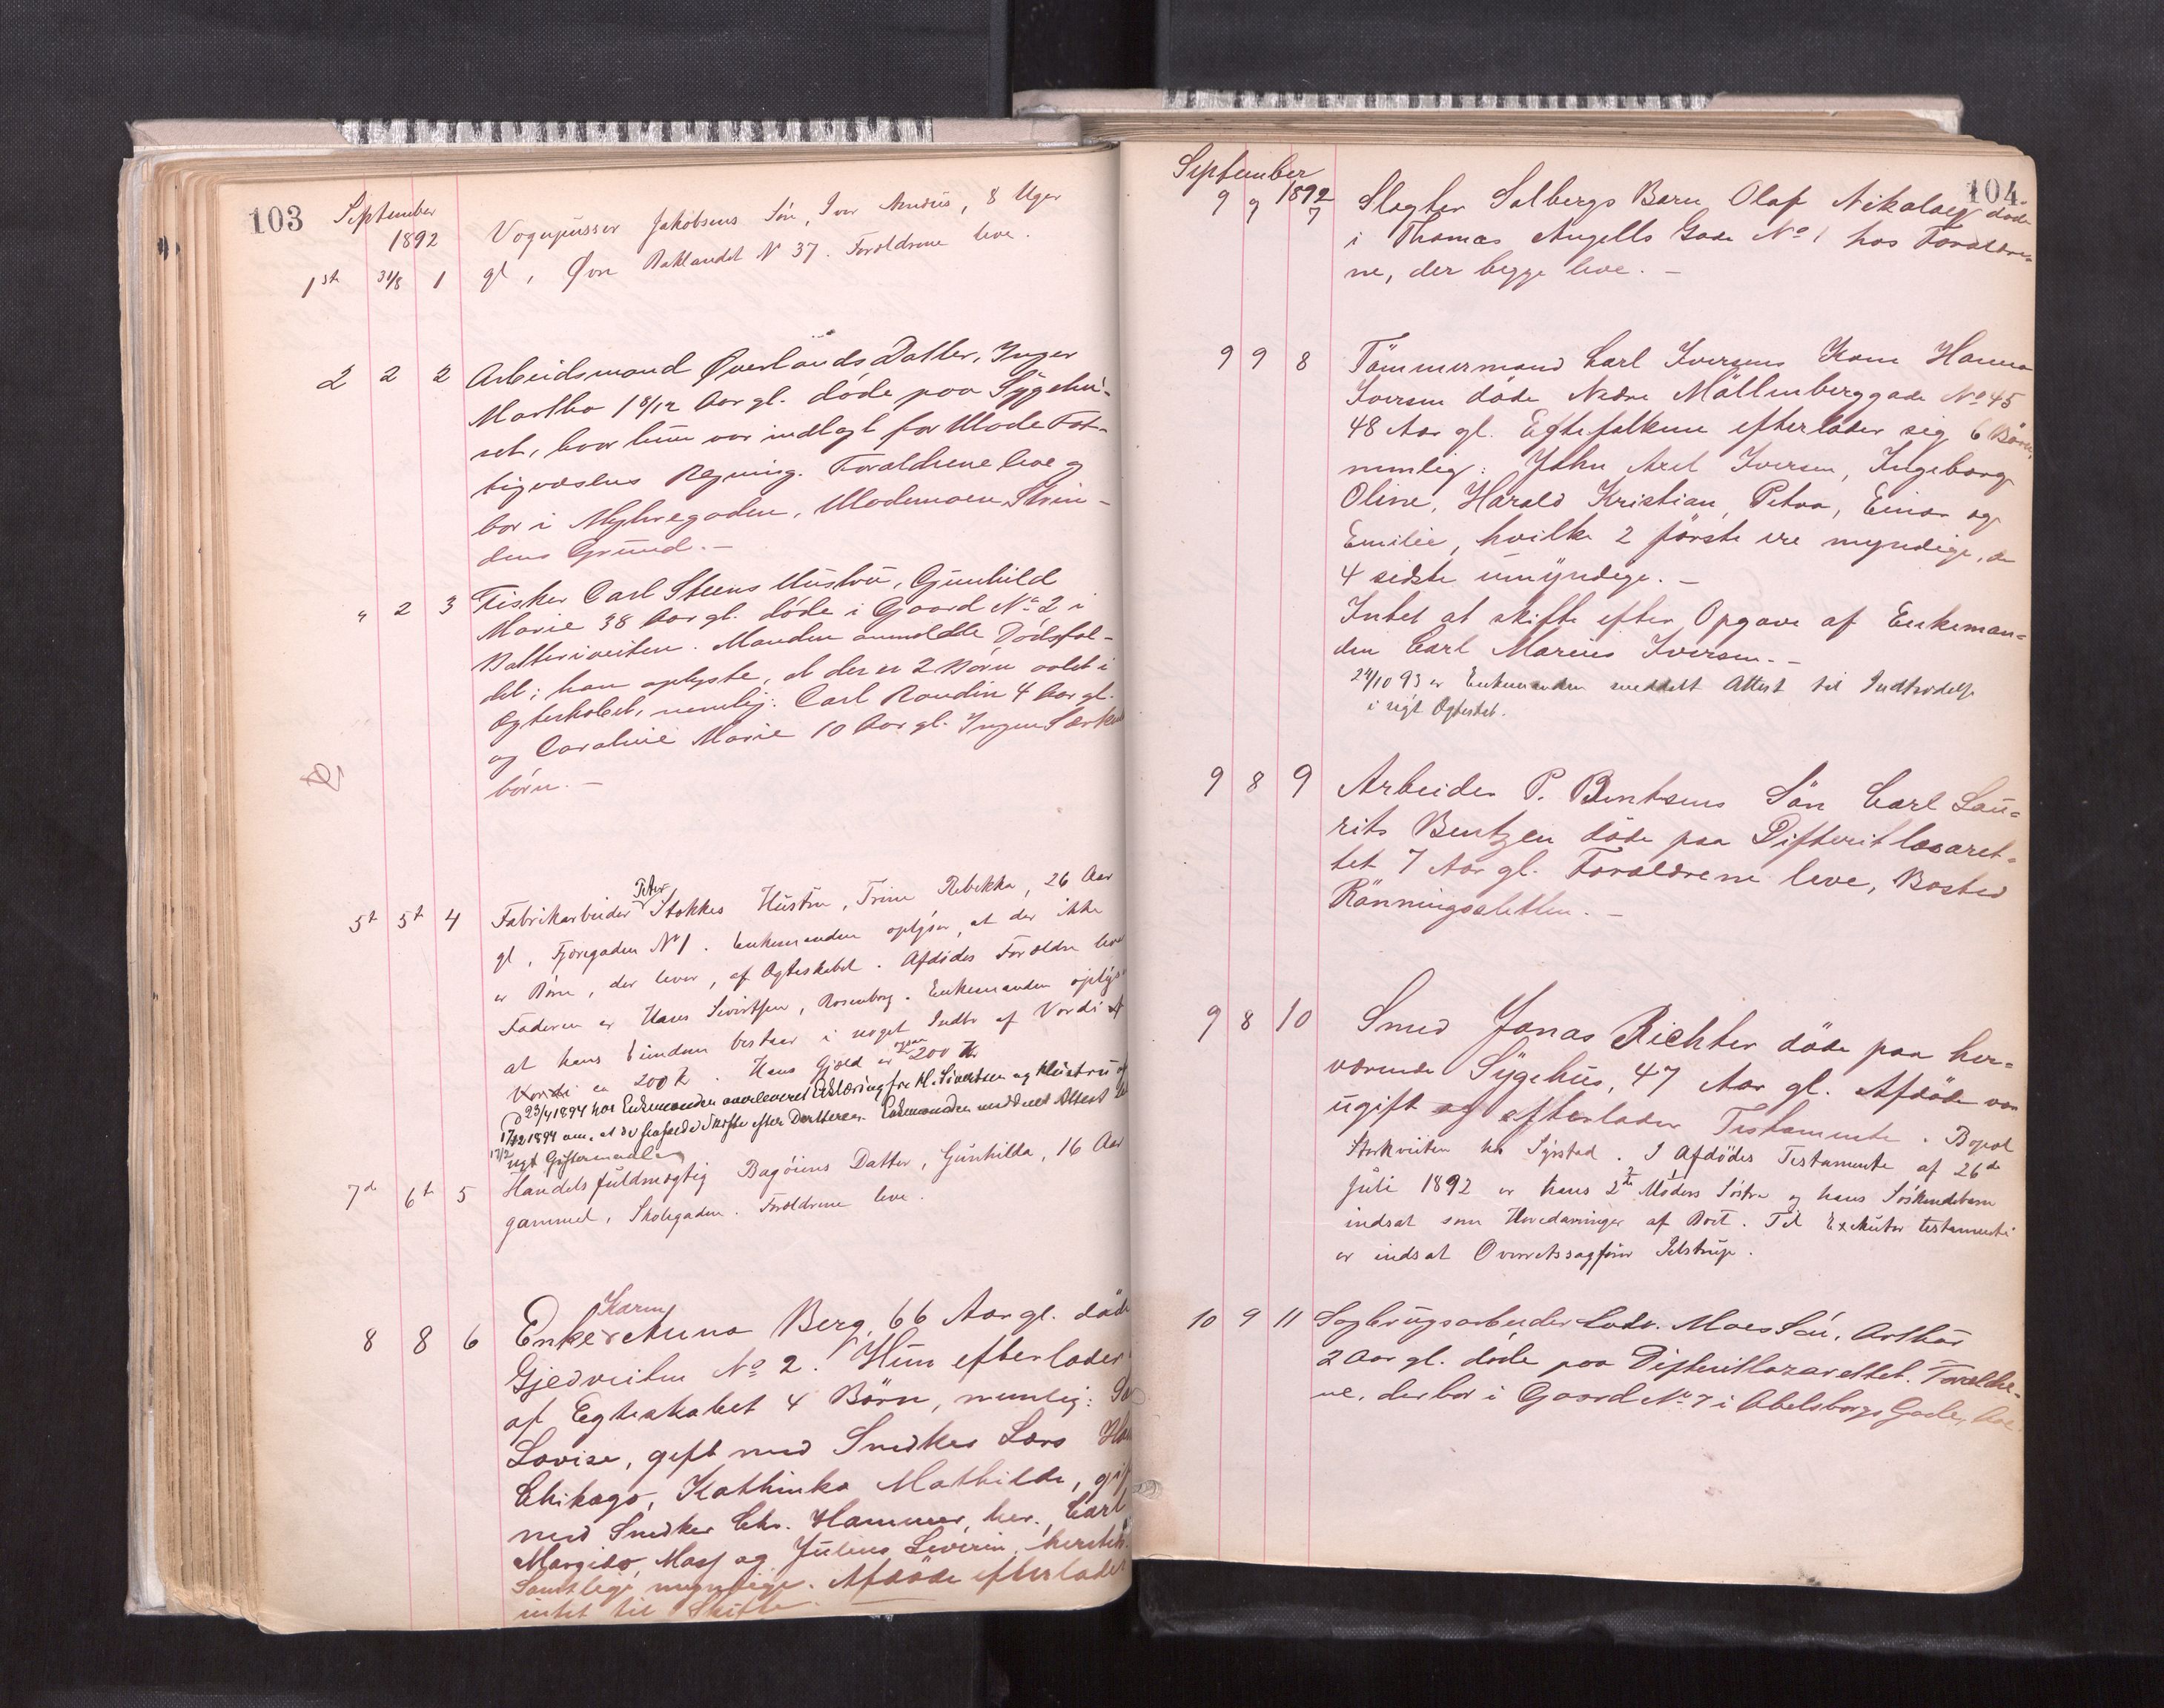 103 September
1892
Vognpusser Jakobsens Søn, Ivar Anuius, 8 Uger
1st 31/8 1 gl, Øvre Baklandet N 37. Forældrene leve.
2 2 2 Arbeidsmand Øverlands Datter, Inger
Martha 1 8/12 Aar gl. døde paa Sygehu-
set, hvor hun var indlagt for Ilade Fat-
tigvæsens Regning. Forældrene leve og
bor i Myhregaden, Ilademoen, Strin-
dens Grund.-
" 2 3 Fisker Carl Steens Hustru, Gunhild
Marie 38 Aar gl. døde i Gaard No 2 i
Batteriveiten. Manden anmeldte Dødsfal-
det; han oplyste, at der er 2 Børn avlet i
Ægteskabet, nemlig: Carl Randin 4 Aar gl.
og Caroline Marie 10 Aar gl. Ingen Særkuld
børn.-
Peter
5t 5t 4 Fabrikarbeider Stokkes Hustru, Trine Rebekka, 26 Aar
gl, Fjæregaden No 1. Enkemanden oplyser, at der ikke
er Børn, der lever, af Ægteskabet. Afdødes Forældre lever
Faderen er Hans Sivertsen, Rosenborg. Enkemanden oplyser
at hans Eiendom bestaar i noget Indbo af Værdi
Værdi ca 200 Kr. Hans Gjæld er ogsaa 200 Kr
23/4 1894 har Enkemanden overleveret Erklæring fra H. Sivertsen og Hustru af
17/2 1894 om, at de frafalde Skifte efter Datteren. Enkemanden meddelt Attest til
17/2 nyt Giftermaal
7de 6t 5 Handelsfuldmægtig Bagøiens Datter, Gunhilda, 16 Aar
gammel, Skolegaden. Forældrene leve.
Karen
8 8 6 Enke Anna Berg, 66 Aar gl. døde
Gjedveiten No 2. Hun efterlader
af Egteskabet 4 Börn, nemlig:
Lovise, gift med Snedker Lars
Chikago, Kathinka Mathilde, gift
med Snedker Chr. Hammer, her, Carl
og Julius Severin, hersteds
Samtlige myndige. Afdøde efterlader
intet til Skifte.
104
September
1892
9 9 7 Slagter Solbergs Barn Olaf Nikolay døde
i Thomas Angells Gade No 1 hos Forældre=
ne, der begge leve.-
9 9 8 Tömmermand Carl Iversens Kone Hanna
Iversen döde Nedre Möllenberggade No 45
48 Aar gl. Egtefolkene efterlader sig 6 Börn,
nemlig: John Axel Iversen, Ingeborg
Oline, Harald Kristian, Petra, Einar og
Emilie, hvilke 2 förste ere myndige, de
4 sidste umyndige.-
Intet at skifte efter Opgave af Enkeman=
den Carl Marius Iversen.-
24/10 93 er Enkemanden meddelt Attest til Indtrædelse
i nyt Ægtesk.
9 8 9 Arbeider P. Bentsens Sön Carl Lau=
rits Bentzen döde paa Difterit lasaret=
tet 7 Aar gl. Forældrene leve, Bosted
Rönningsletten.-
9 8 10 Smed Jonas Richter döde paa her=
værende Sygehus, 47 Aar gl. Afdöde var
ugift og efterlader Testamente. Bopæl
Storkveiten hos Syrstad. I Afdödes Testamente af 26de
Juli 1892 er hans 2de Möders Söstre og hans Söskendebarn
indsat som Hovedarvinger af Boet. Til Exekutor testamenti
er indsat Overretssagförer Jelstrup.
10 9 11 Sagbrugsarbeider Ludv. Moes Søn, Arthur
2 Aar gl. døde paa Difteritlazarettet. Forældre-
ne, der bor i Gaard No 7 i Abelsborgs Gade, leve.